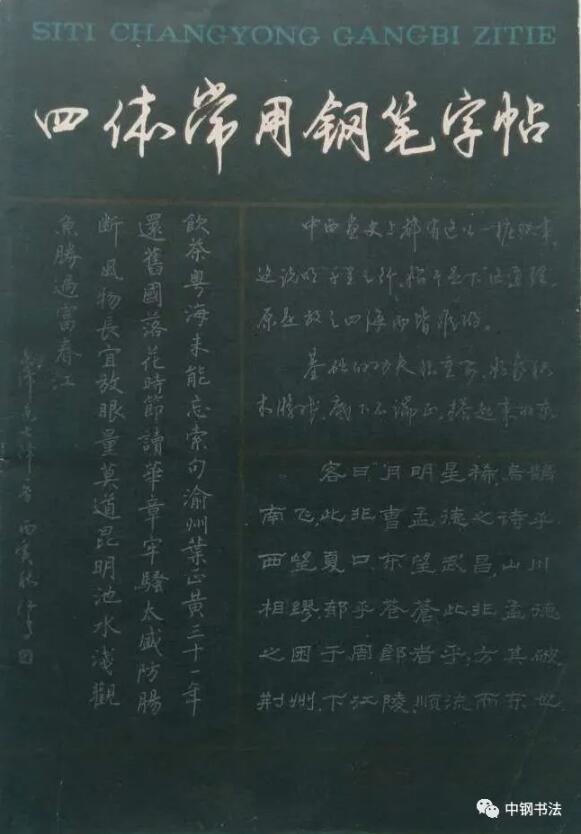 SITI CHANGYONG GANGBI ZITIE
四体常用钢笔字帖
飲茶粤海未能忘索句渝州葉正黄三十一年
還舊國落花時節讀華章牢騷太盛防腸
断風物長宜放眼量莫道昆明池水淺觀
魚勝過富春江
中西画史上都有这么一桩故事,
这说明"千里之行,始于足下"这道理,
原是放之四海而皆准的。
基础的功夫很重要,
木游戏,底下不端正,搭起来的东
客曰"月明星稀,乌鹊
南飞",此非曹孟德之诗乎?
西望夏口,东望武昌,山川
相缪,郁乎苍苍,此非孟德
之困于周郎者乎?方其破
荆州,下江陵,顺流而东也
中钢书法